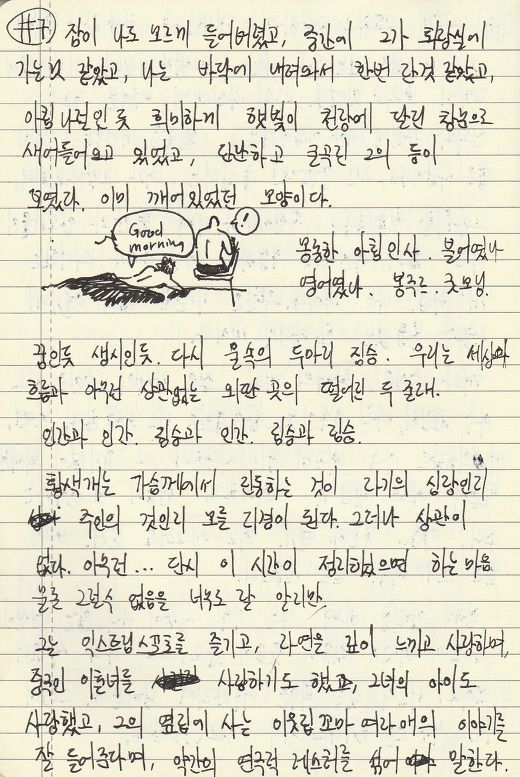 #7. 잠이 나도 모르게 들어버렸고, 중간에 그가 화장실에
가는것 같았고, 나는 바닥에 내려와서 한번 잔것 같았고,
아침 나절인 듯 희미하게 햇빛이 천장에 달린 창문으로
새어들어오고 있었고, 단단하고 굴곡진 그의 등이
보였다. 이미 깨어있었던 모양이다.
Good
morning
!
몽롱한 아침인사. 불어였나
영어였나. 봉주르 굿모닝.
꿈인듯 생시인듯. 다시 물속의 두마리 짐승. 우리는 세상의
흐름과 아무런 상관없는 외딴 곳의 떨어진 두 존재.
인간과 인간. 짐승과 인간. 짐승과 짐승.
황색개는 가슴께에서 진동하는 것이 자기의 심장인지
주인의 것인지 모를 지경이 된다. 그러나 상관이
없다. 아무런... 단지 이 시간이 정지하였으면 하는 마음
물론 그럴수 없음을 너무도 잘 알지만.
그는 익스트림스포츠를 즐기고, 자연을 깊이 느끼고 사랑하며,
중국인 이혼녀를 사랑하기도 했고, 그녀의 아이도
사랑했고, 그의 옆집에 사는 이웃집꼬마 여자애의 이야기를
잘 들어준다며, 약간의 연극적 제스처를 섞어 말한다.